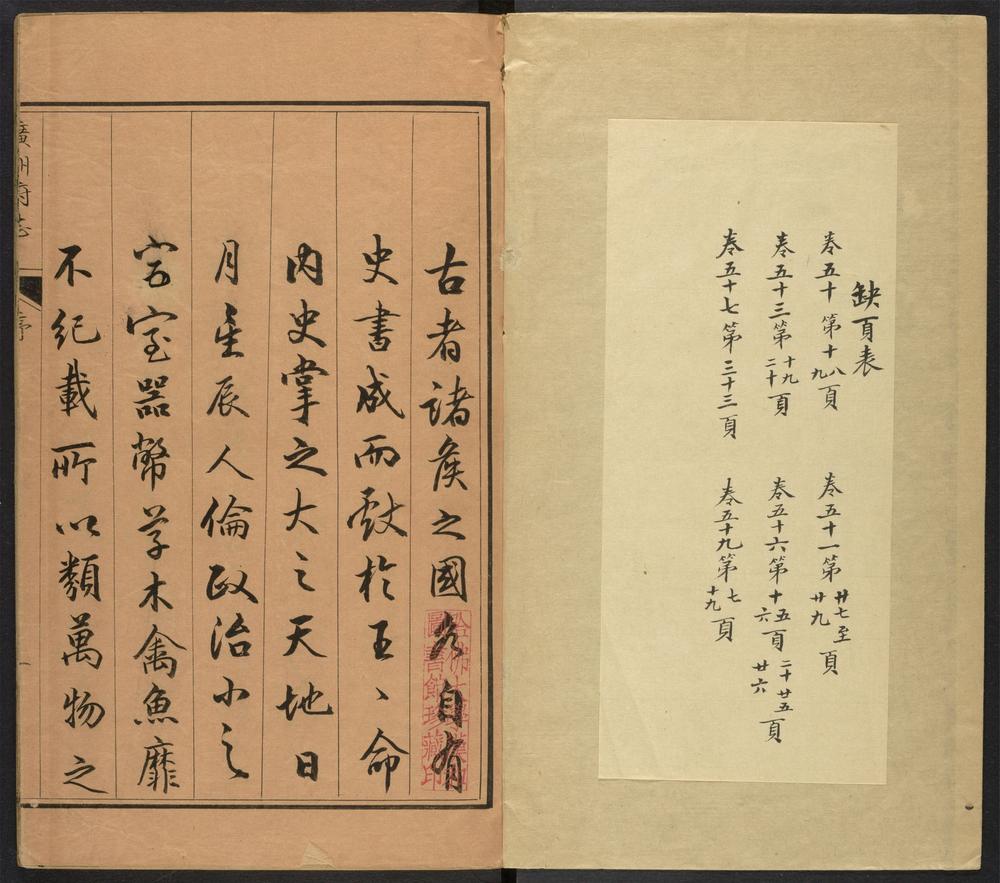 缺頁表
卷五十第十八九頁
卷五十一第廿七至廿九頁
卷五十三第十九二十頁
卷五十六第十五六頁二十廿五廿六頁
卷五十七第三十三頁
卷五十九第七十九頁
古者諸侯之國各自有
史書成而獻於王〻命
內史掌之大之天地日
月星辰人倫政治小之
宮室器幣草木禽魚靡
不紀載所以類萬物之
哈佛大學漢和
圖書館珍藏印
廣州府志
序
一